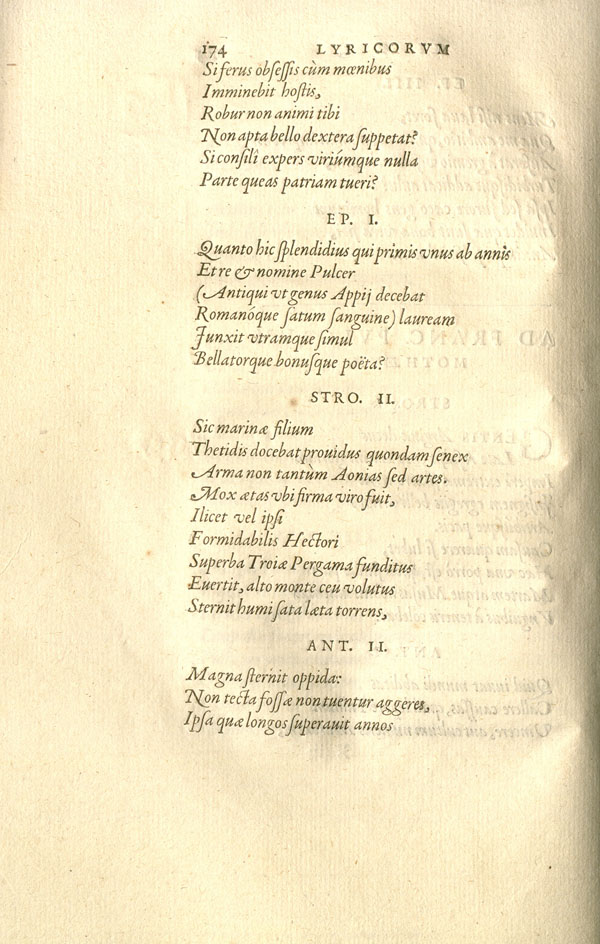 174 LYRICORVM
Si ferus obſeſſis cùm mœnibus
Imminebit hoſtis,
Robur non animi tibi
Non apta bello dextera ſuppetat?
Si conſilî expers viriúmque nulla
Parte queas patriam tueri?
EP. I.
Quanto hic ſplendidius qui primis vnus ab annis
Et re & nomine Pulcer
(Antiqui vt genus Appij decebat
Romanóque ſatum ſanguine) lauream
Junxit vtramque ſimul
Bellatorque bonuſque poëta?
STRO. II.
Sic marinæ filium
Thetidis docebat prouidus quondam ſenex
Arma non tantùm Aonias ſed artes.
Mox ætas vbi firma viro fuit,
Ilicet vel ipſi
Formidabilis Hectori
Superba Troiæ Pergama funditus
Euertit, alto monte ceu volutus
Sternit humi ſata læta torrens,
ANT. II.
Magna ſternit oppida:
Non tecta foſſæ non tuentur aggeres,
Ipſa quæ longos ſuperauit annos